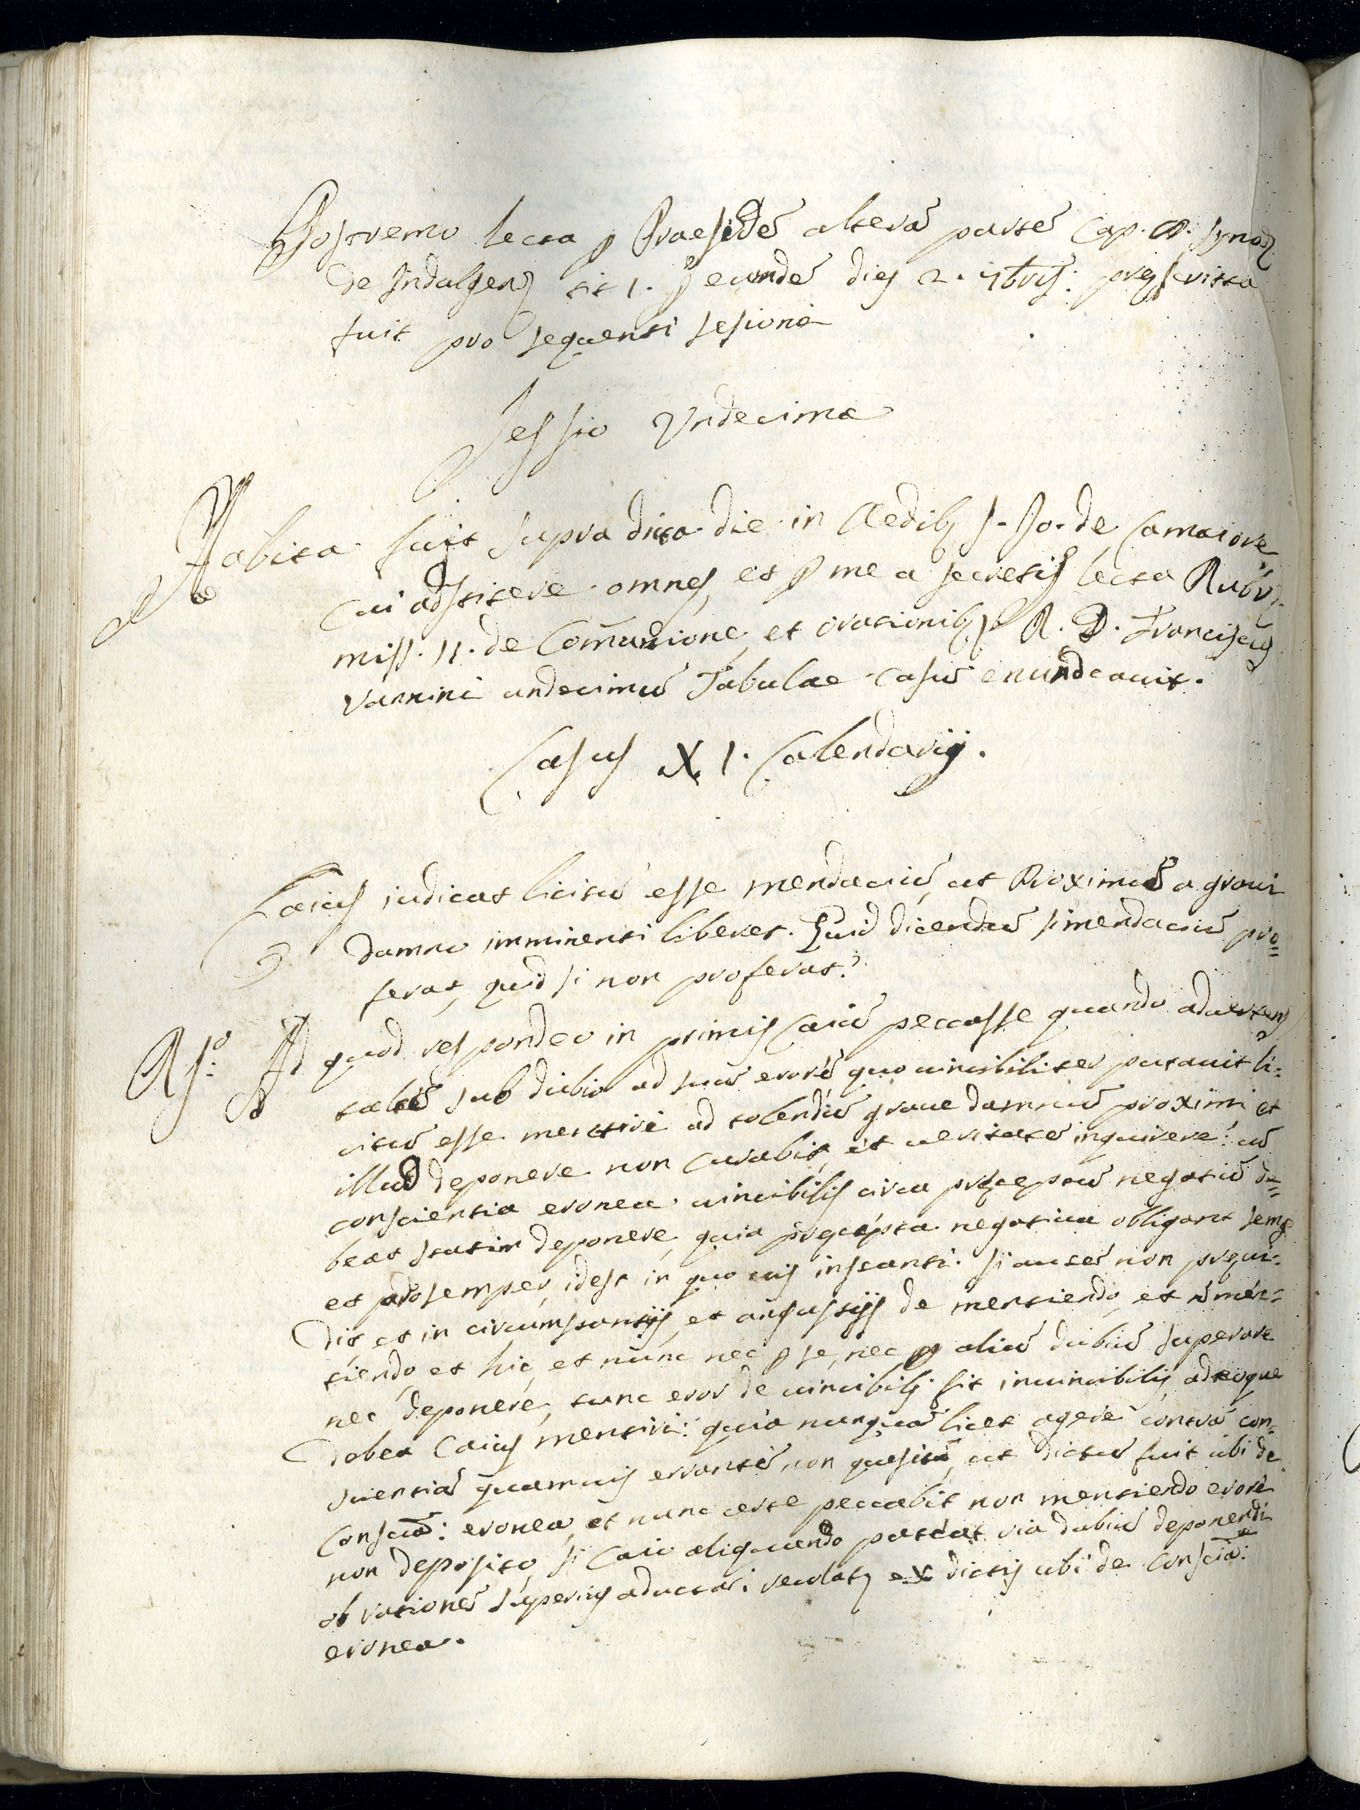 Postremo lecta ꝑ Praesidē alterā partē Cap. A. Synod
de Indulgen tit 1. secundo dies 2. 7bris: præscripta
fuit pro sequenti sesione
Sessio Undecima
Habita fuit supra dicta die in Aedib S. Jo. de Camaiore
cui adstitere omnes, et ꝑ me a secretis lecta Rubr.
miss. 11. de Com̄unione, et orationib R. D. Franciscus
Vannini undecimū Tabulae casū enundeauit.
Casus XI. Calendarij.
Caius iudicat licitū esse mendaciū, ut Proximū a graui
damno imminenti liberet. Quid dicendū si mendaciū pro=
ferat, quid si non proferat?
Rs.º Ad quod respondeo in primis Caiū peccasse quando aduertens
saltē sub dubio ad suū erorē quo uincibiliter putauit li=
citū esse mentire ad tolendū graue damnū proximi et
illud deponere non curabit, et ueritatē inquirere: cū
conscientia eronea uincibilis circa præceptū negatiū de=
beat statim deponere, quia præcepta negatiua obligant semꝑ
et pro semper, idest in quo uis instanti. si autē non præui=
dit, et in circumstantijs, et angustijs de mentiendo, et nō men=
tiendo, et hic, et nunc nec ꝑ se, nec ꝑ aliū dubiū superare
nec deponere, tunc eror de uincibili fit inuincibilis, adeoque
debet Caius mentiri: quia nunquā licet agere contra con=
scientiā quamuis errantē non quesitā, ut dictū fuit ubi de
Consciā: eronea, et nunc certe peccabit non mentiendo erore
non deposito, si Caio aliquando pateat via dubiū deponendi
ob rationē superius aductā: ex dictis ubi de Consciā:
eronea.